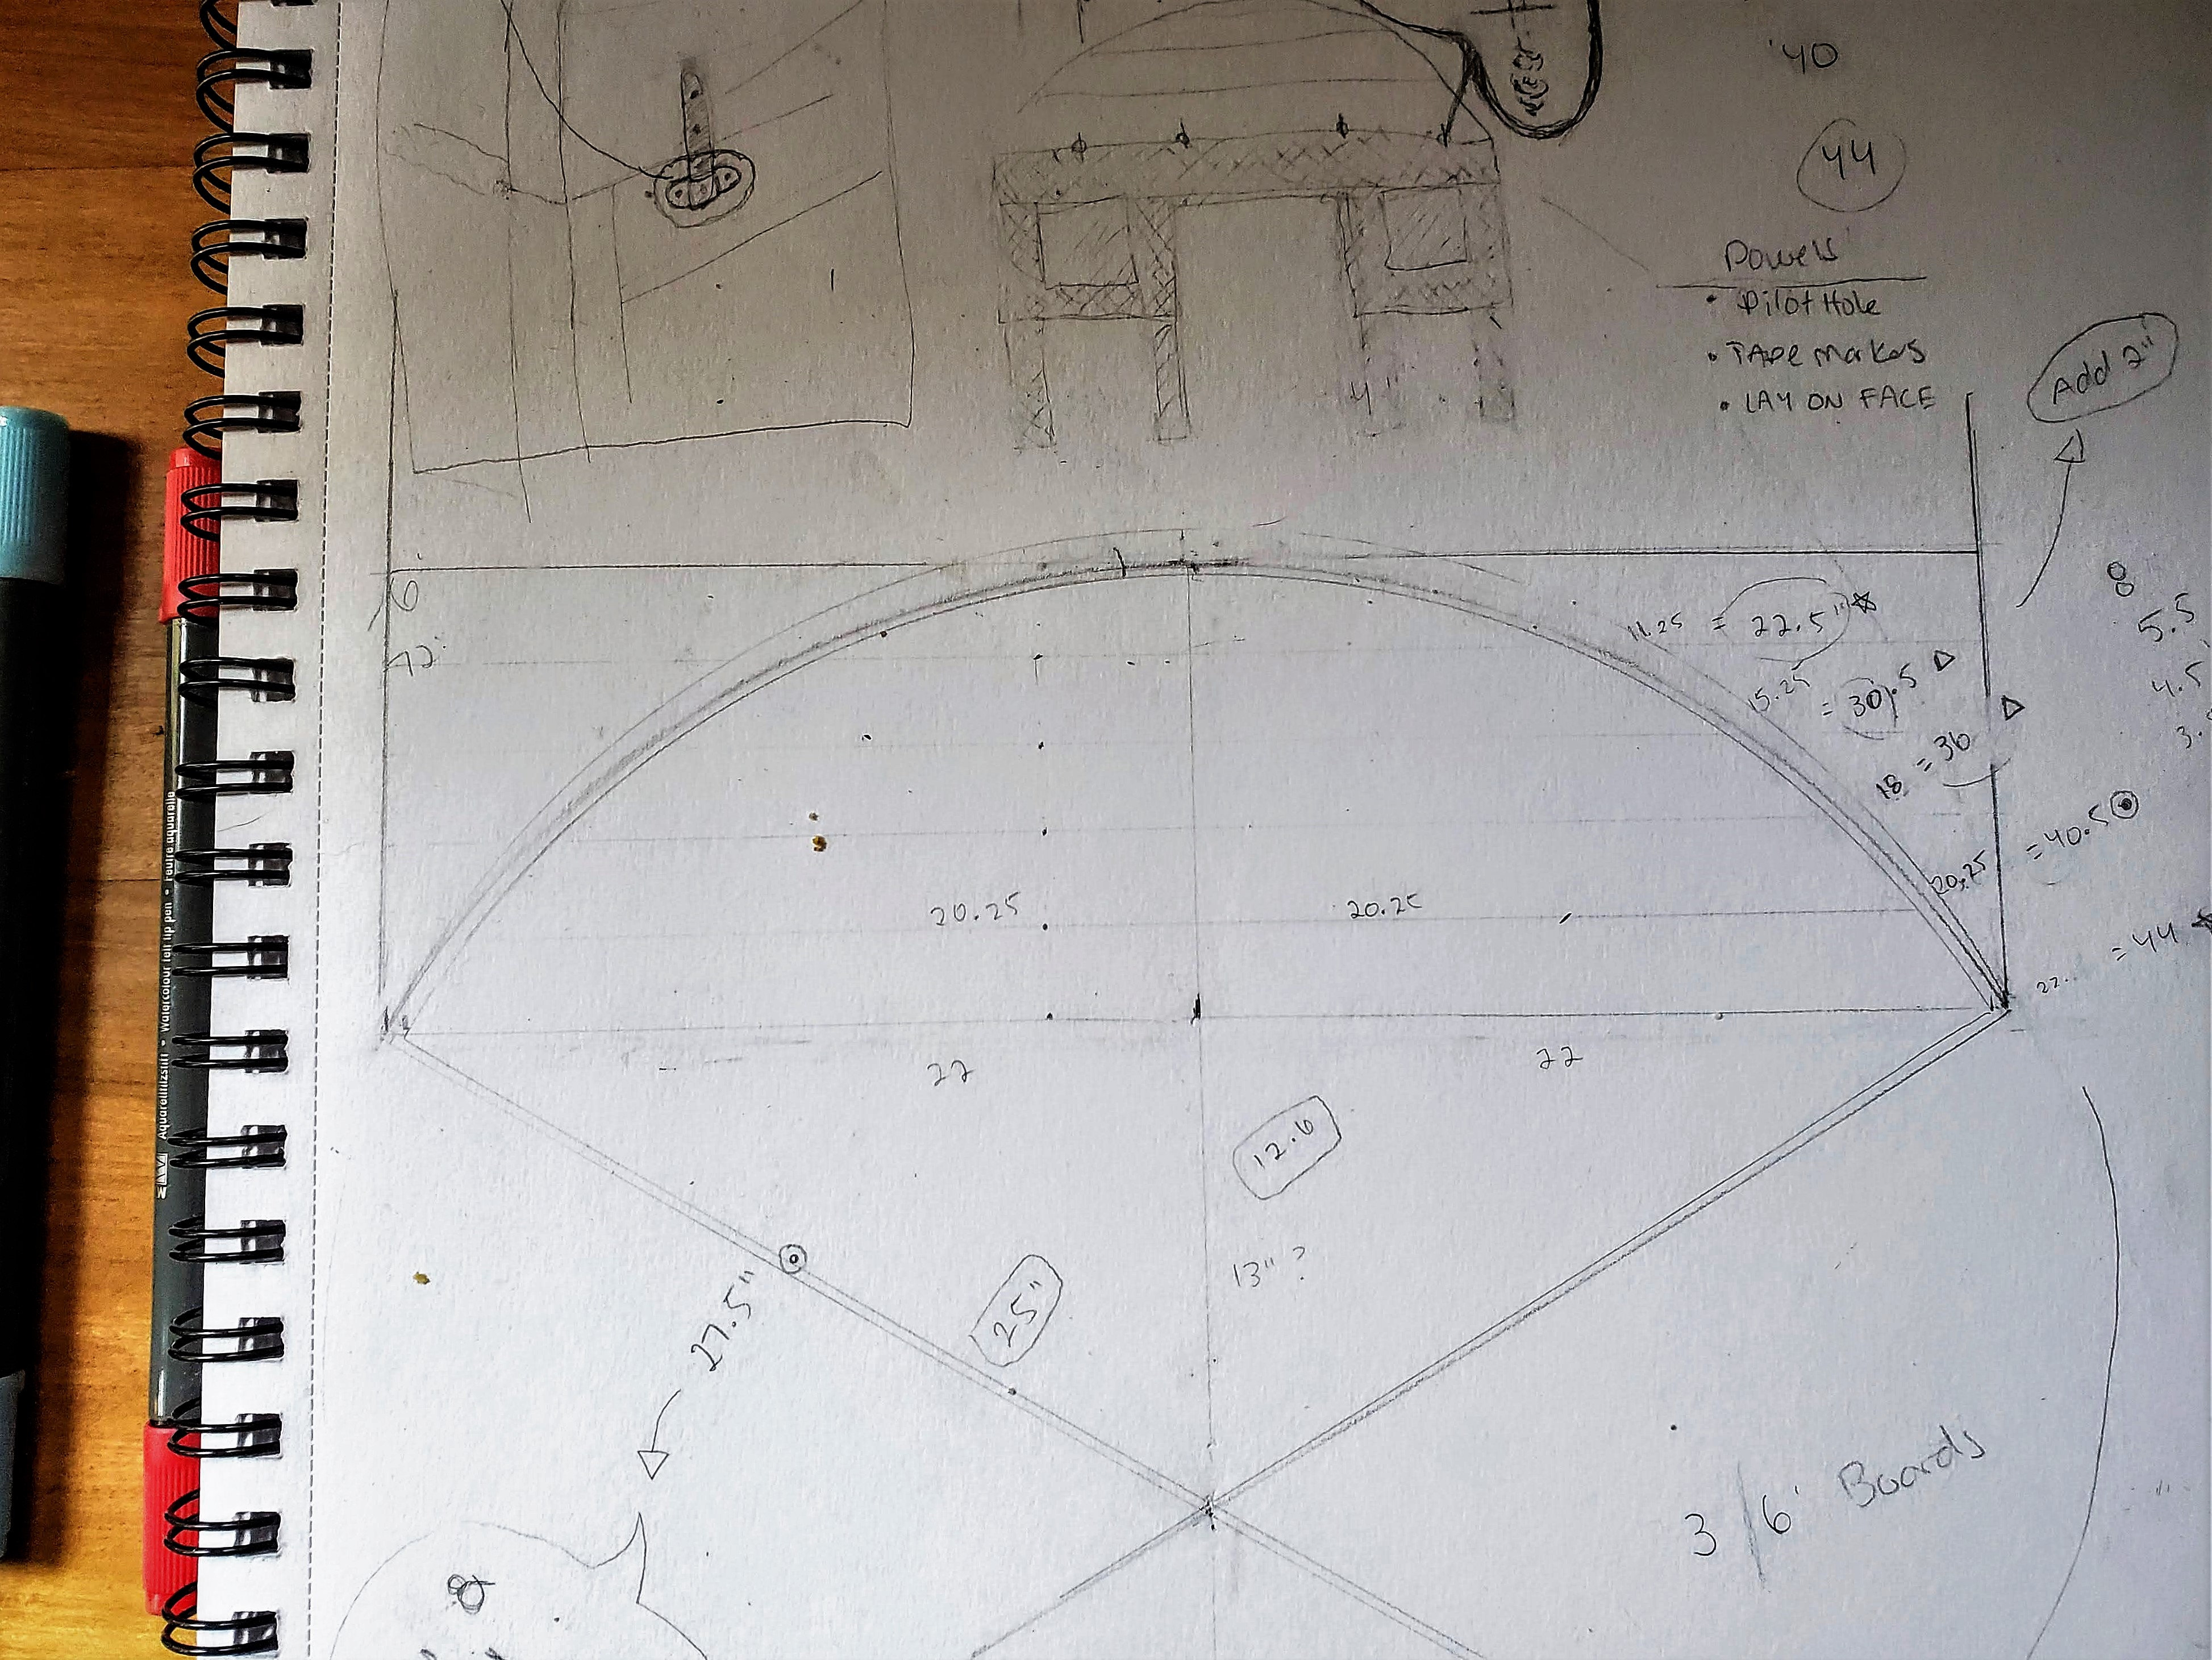 '40
44
Dowels
• Pilot Hole
• TAPE Markers
• LAY ON FACE
Add 2"
4"
6
72
11.25 = 22.5"
15.25 = 30.5
18 = 36
20.25 = 40.5
22 = 44
8
5.5
4.5
3.
20.25
20.25
22
22
12.6
13"?
25"
27.5"
3/6' Boards
8
Aquarellfilzstift • Watercolour felt tip pen • Feutre aquarelle